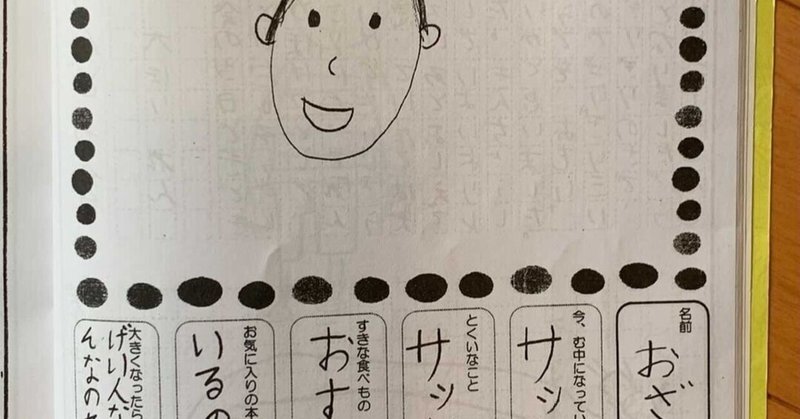 名前
おざ
今、む中になってい
サッ
とくいなこと
サッ
すきな食べもの
おす
お気に入りの本
いるの
大きくなったら
げい人な
んなのお